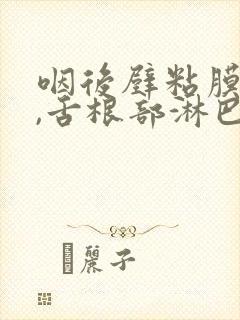 咽後壁粘膜
,舌根部淋巴
麗子